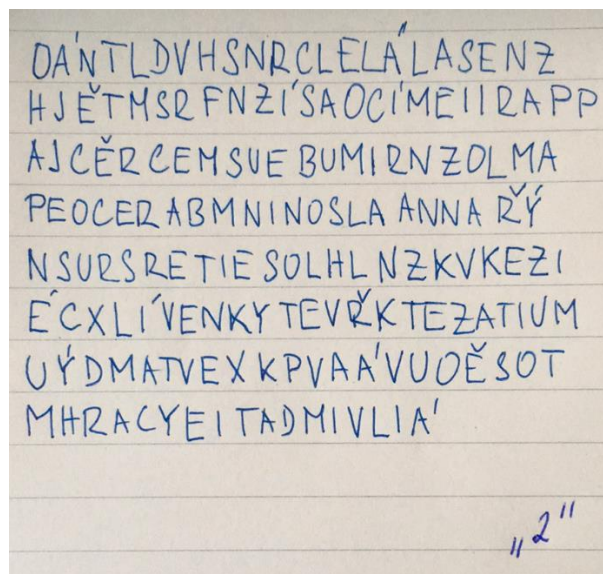 OÁNTLDVHSNRCLELÁLASENZ
HJĚTMSRFNZÍSAOCÍMEIIRAPP
AJCĚRCEMSUEBUMIRNZOLMA
PEOCERABMNINOSLAANNAŘÝ
NSURSRETIESOLHLNZKVKEZI
ÉCXLÍVENKYTEVŘKTEZATIUM
UÝDMATVEXKPVAÁVUOĚSOT
MHRACYEITADMIVLIÁ
„2"